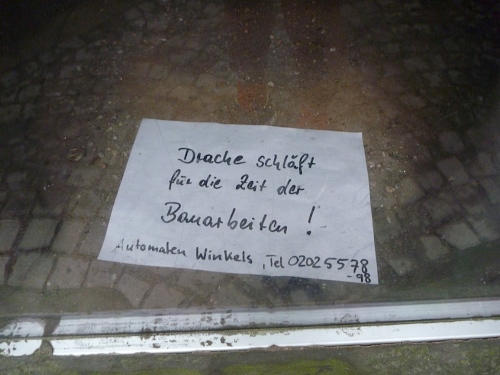 Drache schläft
für die Zeit der
Bauarbeiten !
Automaten Winkels, Tel 0202 5578
-98